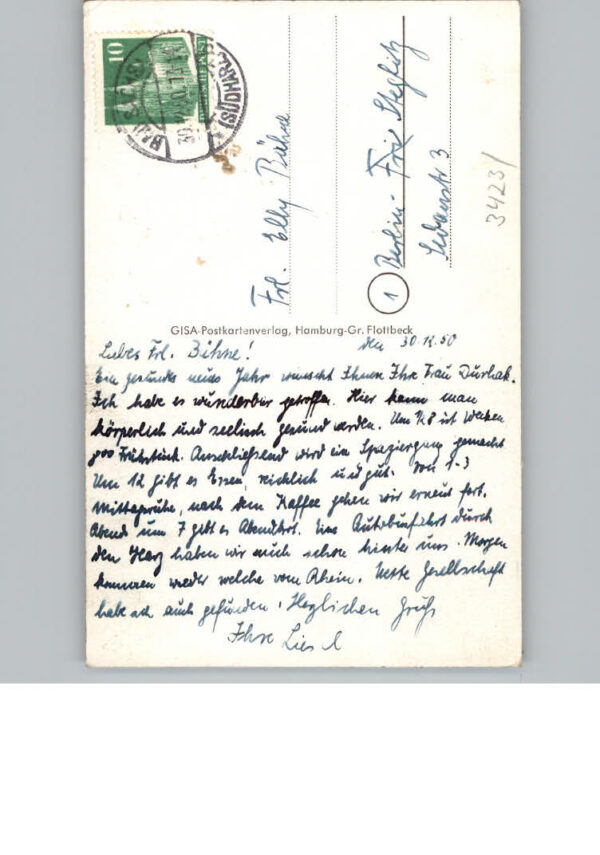 10
BAD SACHSA
(SÜDHARZ)
30.
Frl. Elly Bühne
1 Berlin - Steglitz
3
3423/
GISA-Postkartenverlag, Hamburg-Gr. Flottbeck
den 30.12.50
Liebes Frl. Bühne!
Ein gesundes neues Jahr wünscht Ihnen Ihre Frau
Ich habe es wunderbar getroffen. Hier kann man
körperlich und seelisch gesund werden. Um ½8 ist Wecken
Frühstück. Anschließend wird ein Spaziergang gemacht
Um 12 gibt es Essen, reichlich und gut. Von 1-3
Mittagsruhe, nach dem Kaffee gehen wir erneut fort.
Abend um 7 gibt es Abendbrot. Eine Autobusfahrt durch
den Harz haben wir auch schon hinter uns. Morgen
kommen wieder welche vom Rhein. Nette Gesellschaft
habe ich auch gefunden. Herzlichen Gruß
Ihre